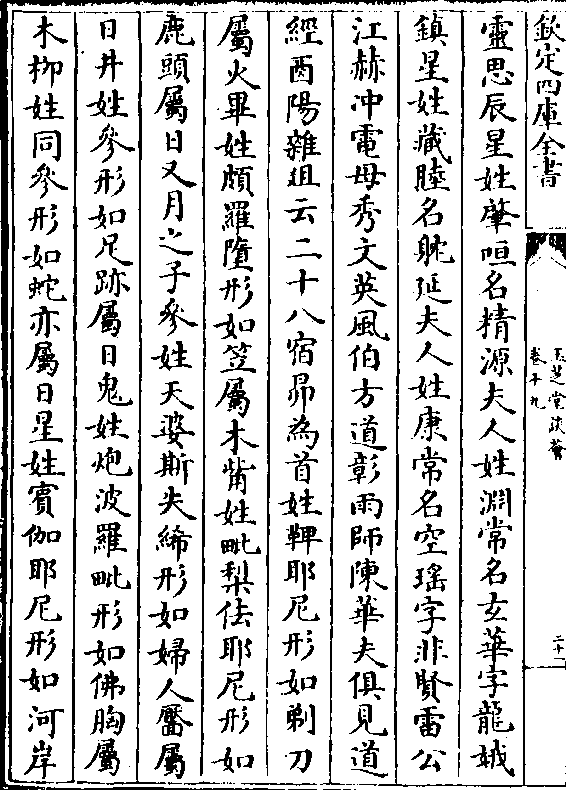 欽定四庫全書
玉芝堂談薈
卷十九
二十一
靈思辰星姓肇咺名精源夫人姓淵常名玄華字龍娥
鎮星姓藏睦名躭延夫人姓康常名空瑤字非賢雷公
江赫冲電母秀文英風伯方道彰雨師陳華夫俱見道
經酉陽雜俎云二十八宿昴為首姓鞞耶尼形如剃刀
屬火畢姓頗羅墮形如笠屬木觜姓毗梨佉耶尼形如
鹿頭屬日又月之子參姓天婆斯失絺形如婦人黶屬
日井姓參形如足跡屬日鬼姓炮波羅毗形如佛胸屬
木柳姓同參形如蛇亦屬日星姓賓伽耶尼形如河岸